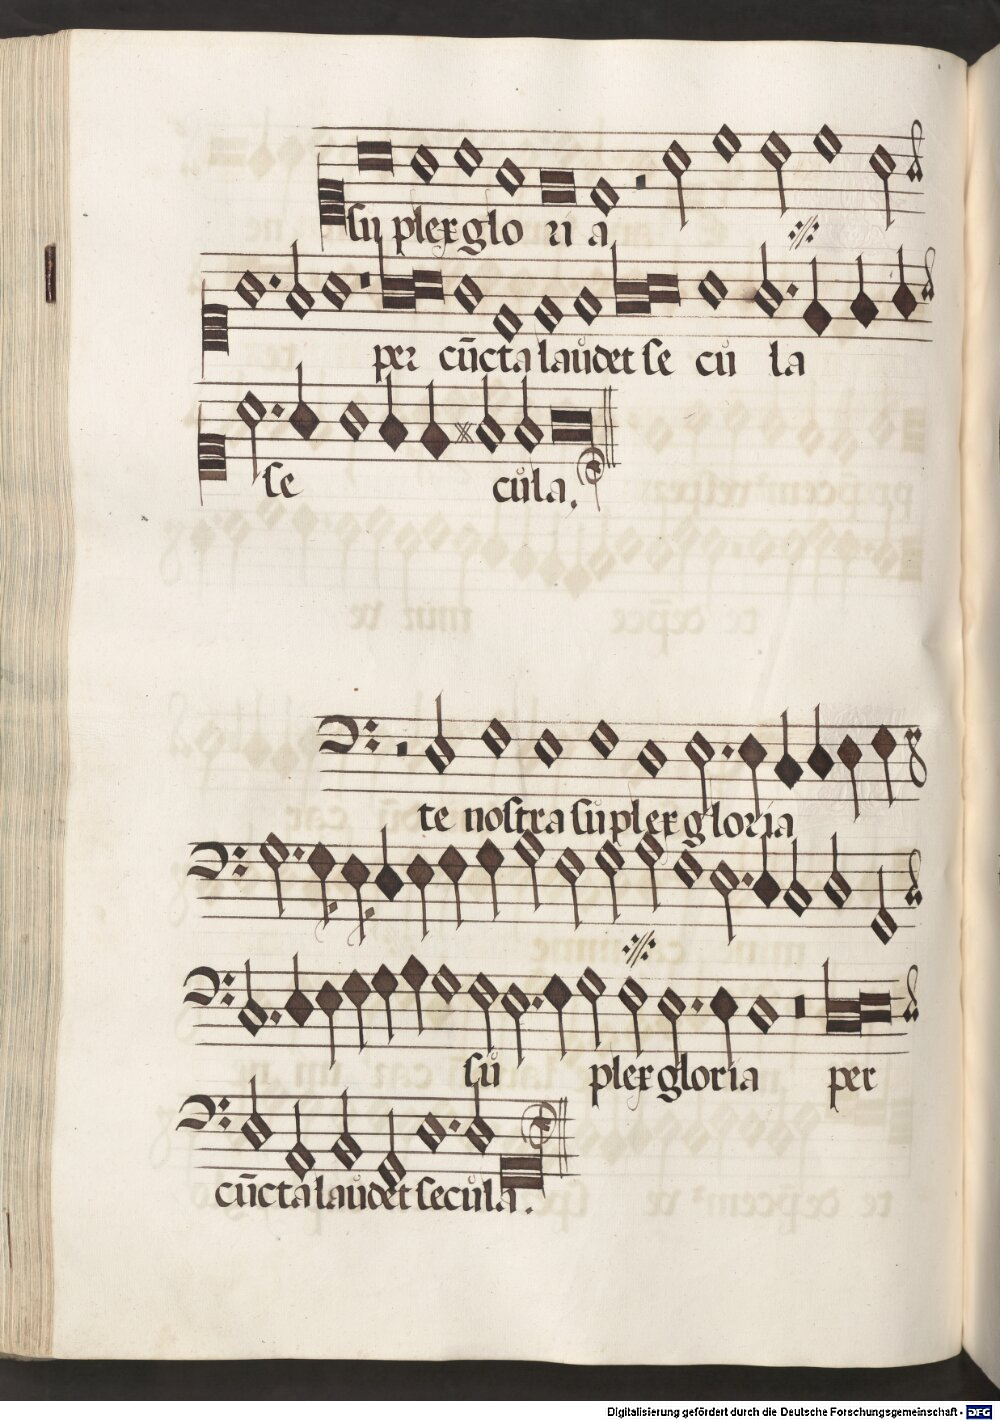 su plex glo ri a
per cūcta laudet se cu la
se cula.
te nostra su plex gloria
su plex gloria per
cūcta laudet secula.
Digitalisierung gefördert durch die Deutsche Forschungsgemeinschaft - DFG